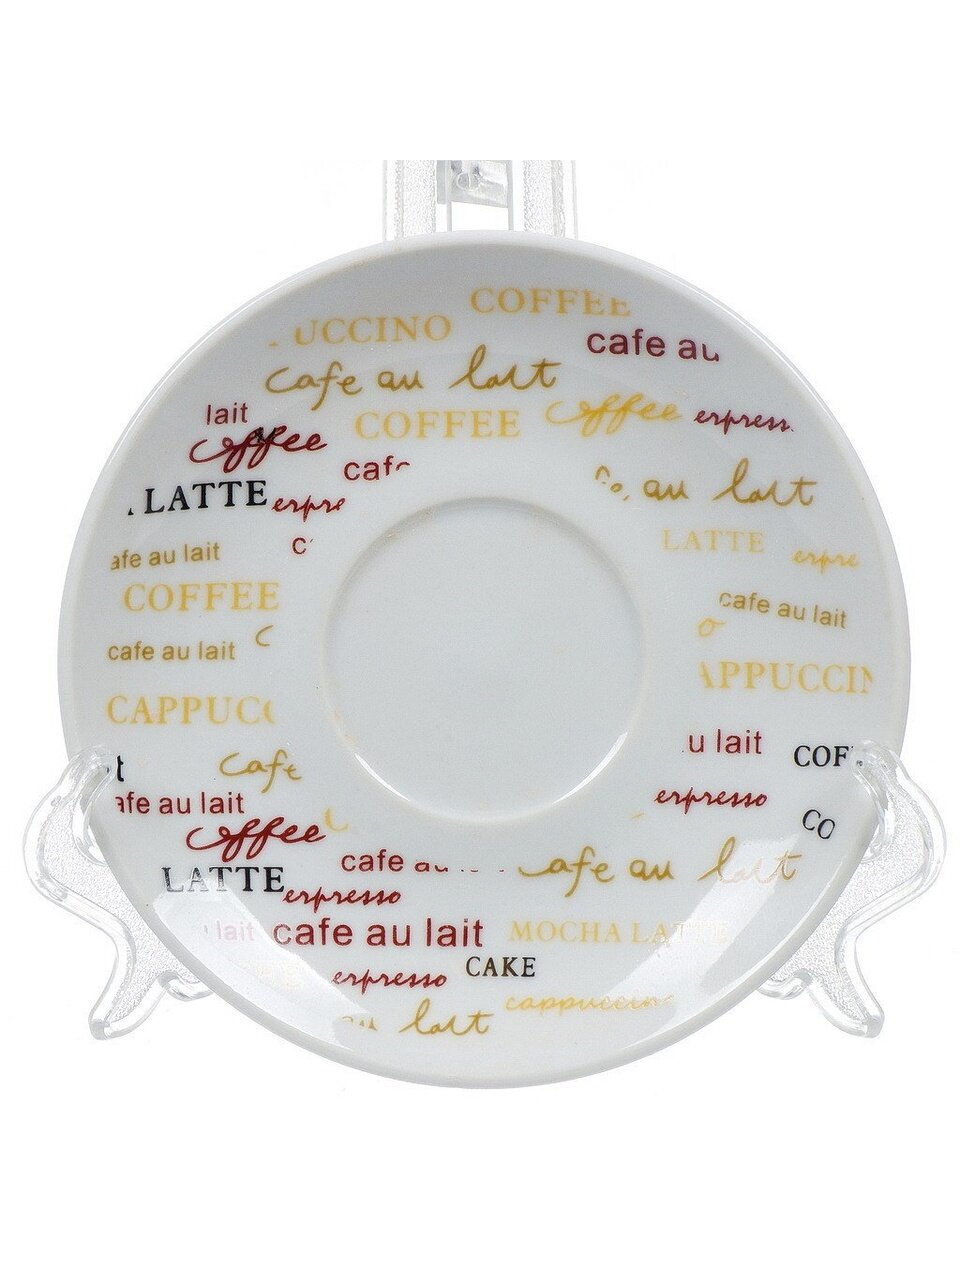 COFFEE
UCCINO
cafe au
cafe au lait
lait
COFFEE
coffee
expresso
coffee
cafe
LATTE
expre
au lait
LATTE
expre
c
afe au lait
COFFEE
cafe au lait
cafe au lait
C
o
CAPPUCC
APPUCCIN
u lait
COF
t
cafe
afe au lait
expresso
CO
coffee
cafe au
cafe au lait
LATTE
expresso
lait
cafe au lait
MOCHA LATTE
expresso
CAKE
cappuccino
au lait